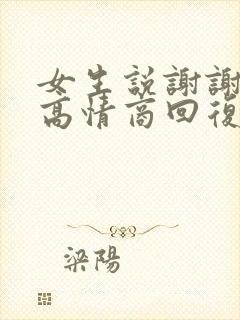 女生説謝謝
高情商回復
梁陽